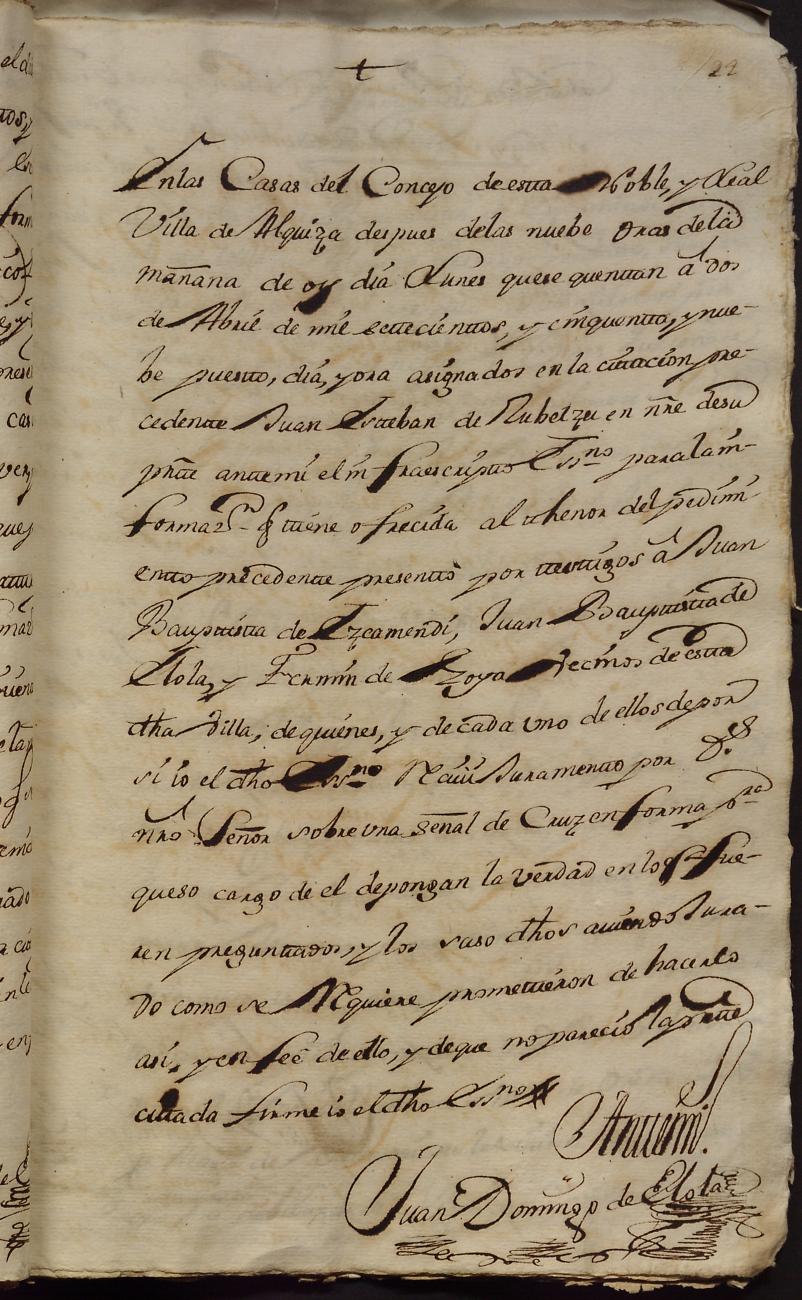 22
Enlas Casas del Concejo de esta Noble, y Leal
Villa de Alquiza despues delas nuebe oras de la
mañana de oy dia Lunes que se quentan à dos
de Abril de mil settecientos, y cinquenta, y nue-
be puesto, dia, y ora asignados en la citacion pre-
cedente Juan Esteban de Rubelzu en nre de su
prte ante mi el infraescripto Essno para la in-
formazn q tiene ofrecida al thenor del pedimi-
ento precedente presentó por testigos à Juan
Bauptista de Ezcamendi, Juan Bauptista de
Elola, y Fermin de Izoya Vecinos de esta
dha Villa, de quienes, y de cada uno de ellos de por
si io el dho Essno Reciui Juramento por Ds
nro Señor sobre una señal de Cruz en forma
queso cargo de el depongan la verdad en lo q fue-
ren preguntados, y los suso dhos auiendo Jura-
do como se Requiere prometieron de hacerlo
asi, y en fee de ello, y de que no pareció la prte
citada firme io el dho Essno
Antemi
Juan Domingo de Elola